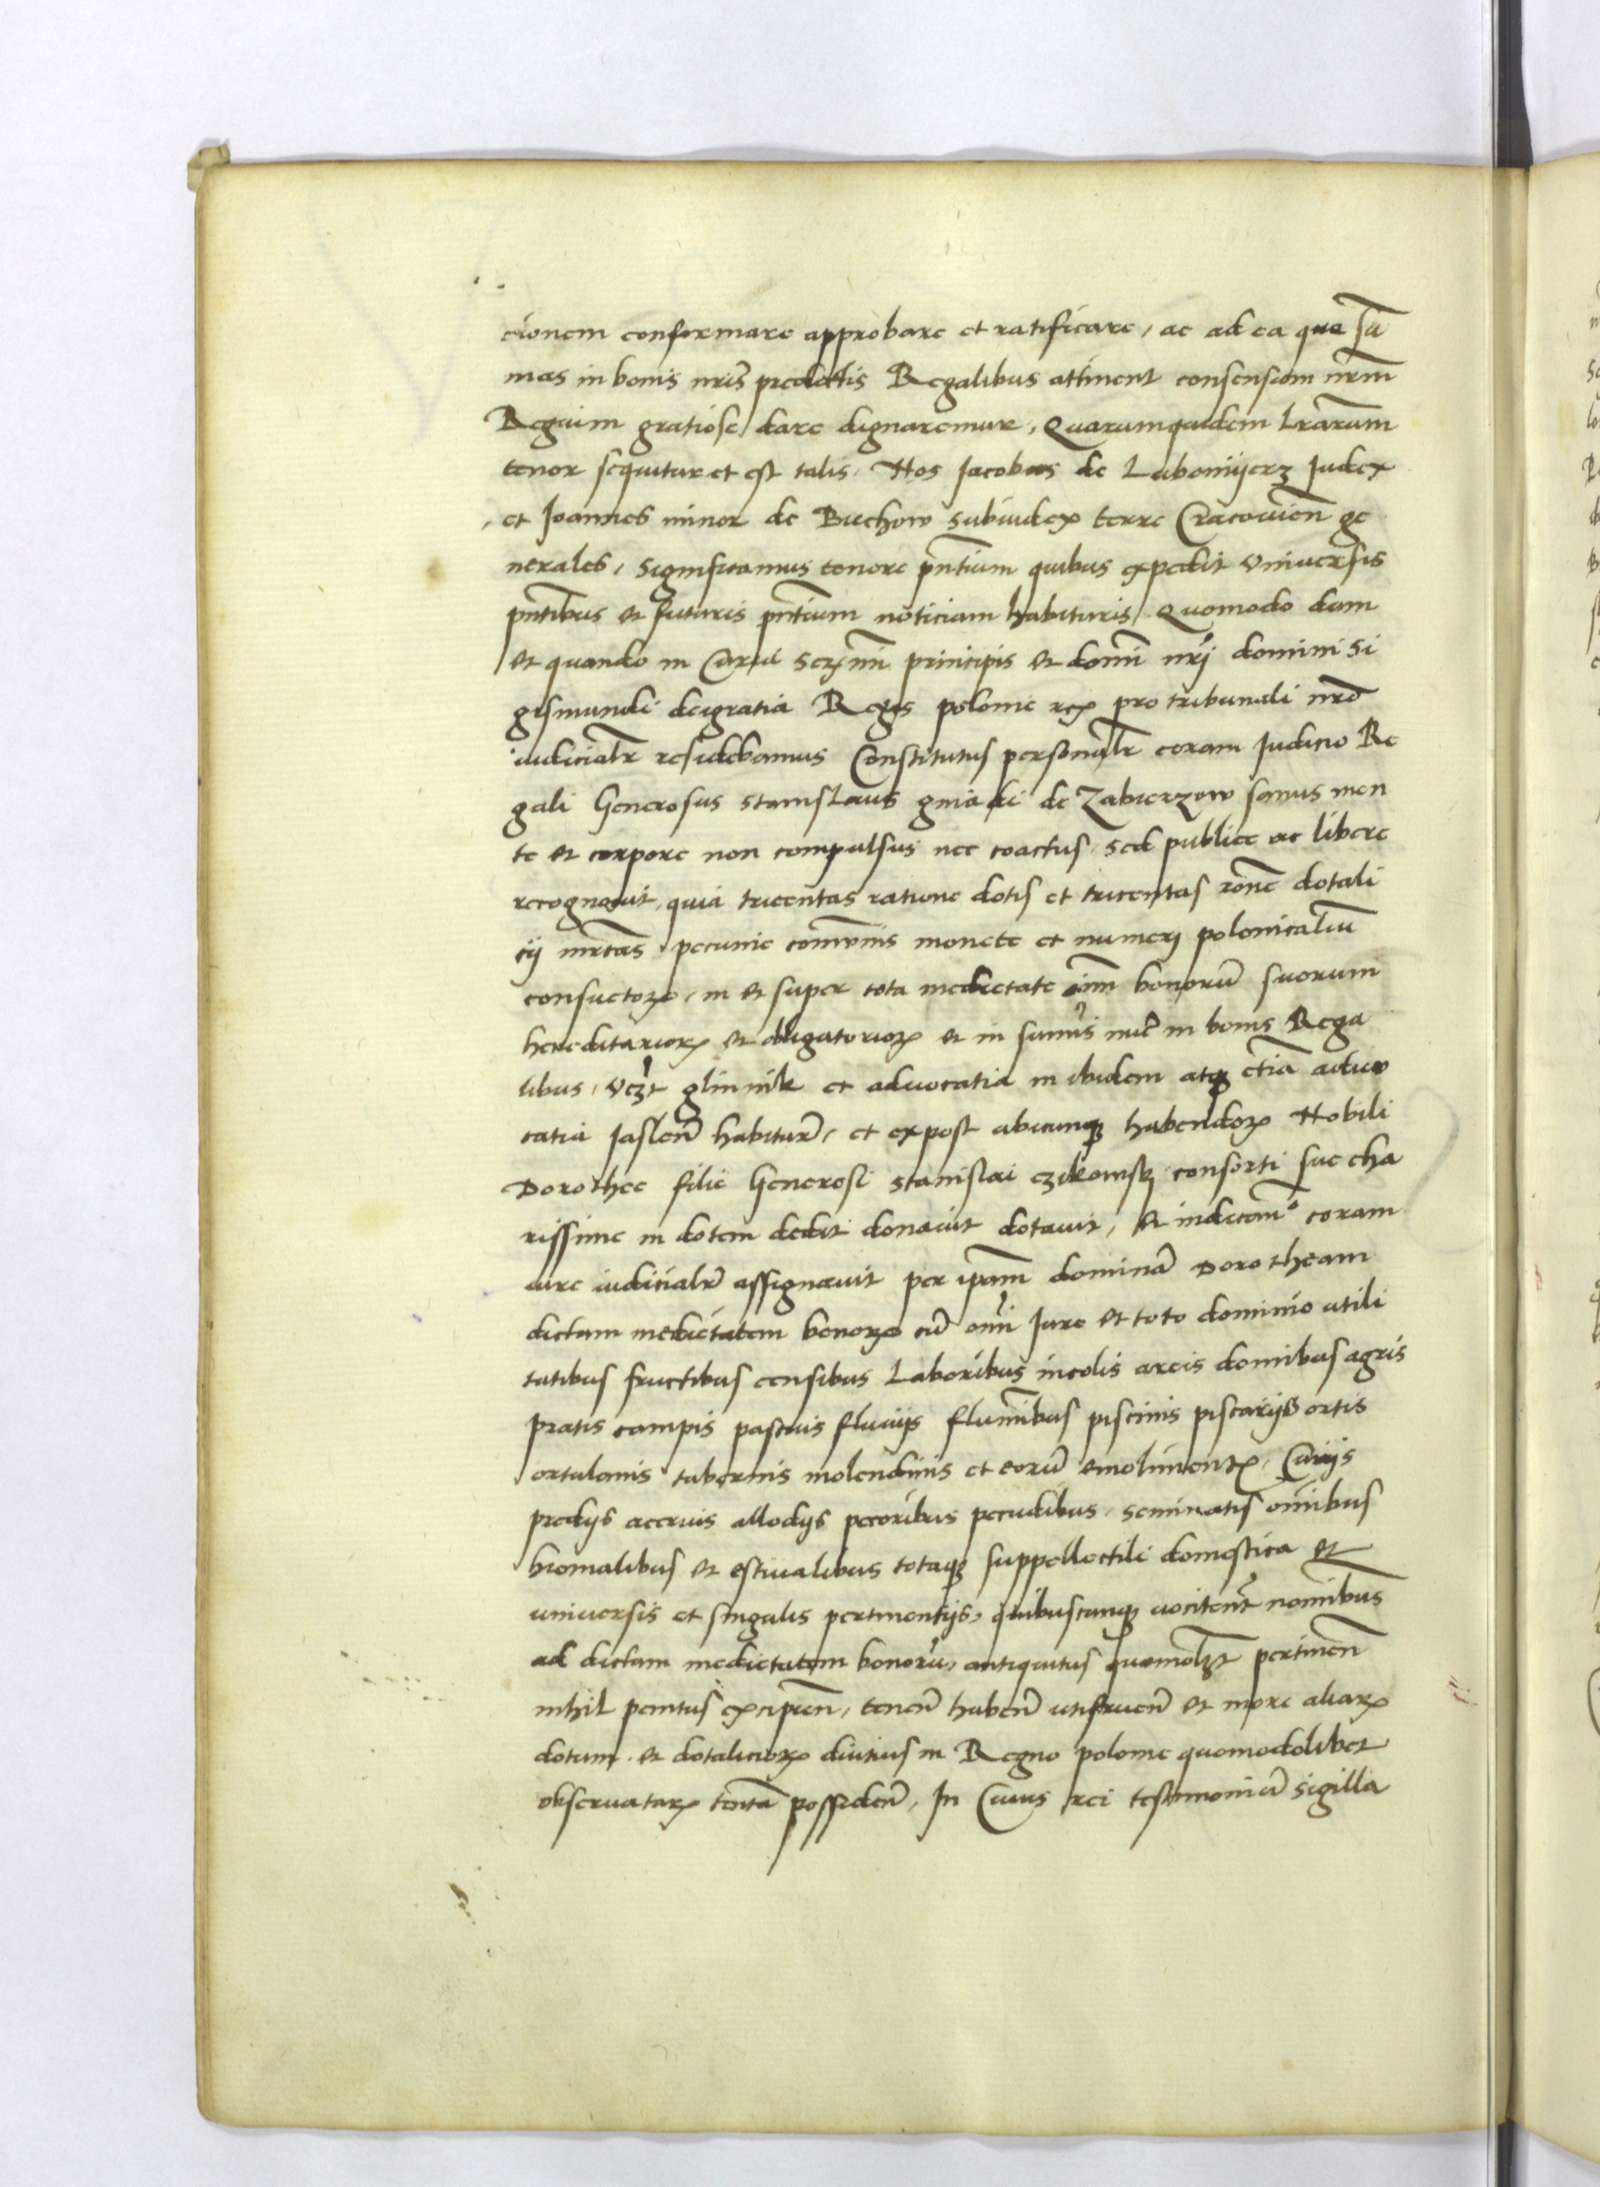 cionem conformare approbare et ratificare, ac ad ea que sū
mas in bonis nr̄is predictis Regalibus attinent consensum nr̄m
Regium gratiose dare dignaremur, Quarumquidem lr̄arum
tenor sequitur et est talis. Nos Jacobus de Lubomijerz Judex
et Joannes minor de Buchow subiudex terre Cracovień ge
nerales, Significamus tenore pn̄tium quibus expedit vniuersis
pn̄tibus et futuris pn̄tium noticiam habituris, Quomodo dum
et quando in Curia Serm̄i principis et domi͞ nr̄j domini Si
gismundi deigratia Regis polonie rcꝫ pro tribunali nr̄o
iudicialr̄ residebamus Constitutus personalr̄ coram Judicio Re
gali Generosus Stanislaus gniadi de Zabierzow sanus men
te et corpore non compulsus nec coactus, sed publice ac libere
recognouit, quia tricentas ratione dotis et tricentas rōne dotali
cij mr̄cas pecunie com̄vnis monete et numerj polonicaliū
consuetoꝝ, in et super tota medietate om̄i bonorū suorum
hereditarioꝝ et obligatorioꝝ et in sum̄is nūc in bonis Rega
libus, vcꝫt glinnik et aduocatia in ibidem atqꝫ etiā aduo
catia Jaslen̄ habitur̄, et expost vbicunqꝫ habendoꝝ Nobili
Dorothee filie Generosi Stanislai czikowsky consorti sue cha
rissime in dotem dedit donauit dotauit, et indecām̄ coram
iure iudicialr̄ assignauit per ip̄am dominā Dorotheam
dictam medietatem bonoꝝ cū om̄i Jure et toto dominio utili
tatibus fructibus censibus Laboribus incolis areis domibus agris
pratis campis pascuis fluuijs flumībus piscinis piscarijs ortis
ortulanis tabernis molendinis et eorū emolimentꝭ, Curijs
predijs aceruis allodijs pecoribus pecudibus, seminatis om̄ibus
hiemalibus et estiualibus totaqꝫ suppellectili domestica et
vniuersis et singulis pertinentijs, quibuscunqꝫ vocitent̄ nomībus
ad dictam medietatem bonorū, antiquitus quomolꝫt pertinen̄
nihil penitus excipien̄, tenen̄ haben̄ utifruen̄ et more aliaꝝ
dotum et dotalicioꝝ diutius in Regno polonie quomodolibet
obseruataꝝ tentā possiden̄, In Cuius rei testimoniū Sigilla